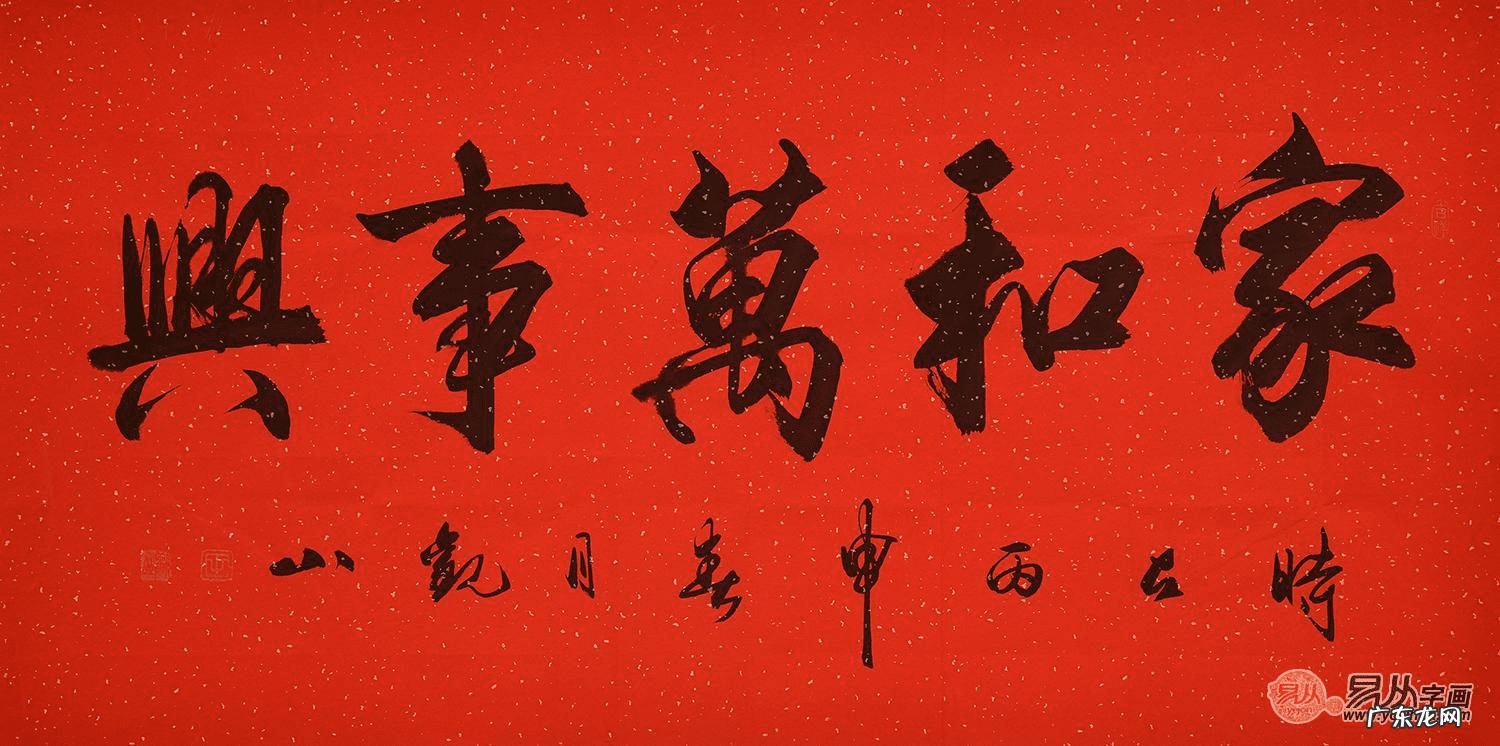 家和萬事興
時在丙申春月觀山
易从
易从字画
yicyon
广东龙网